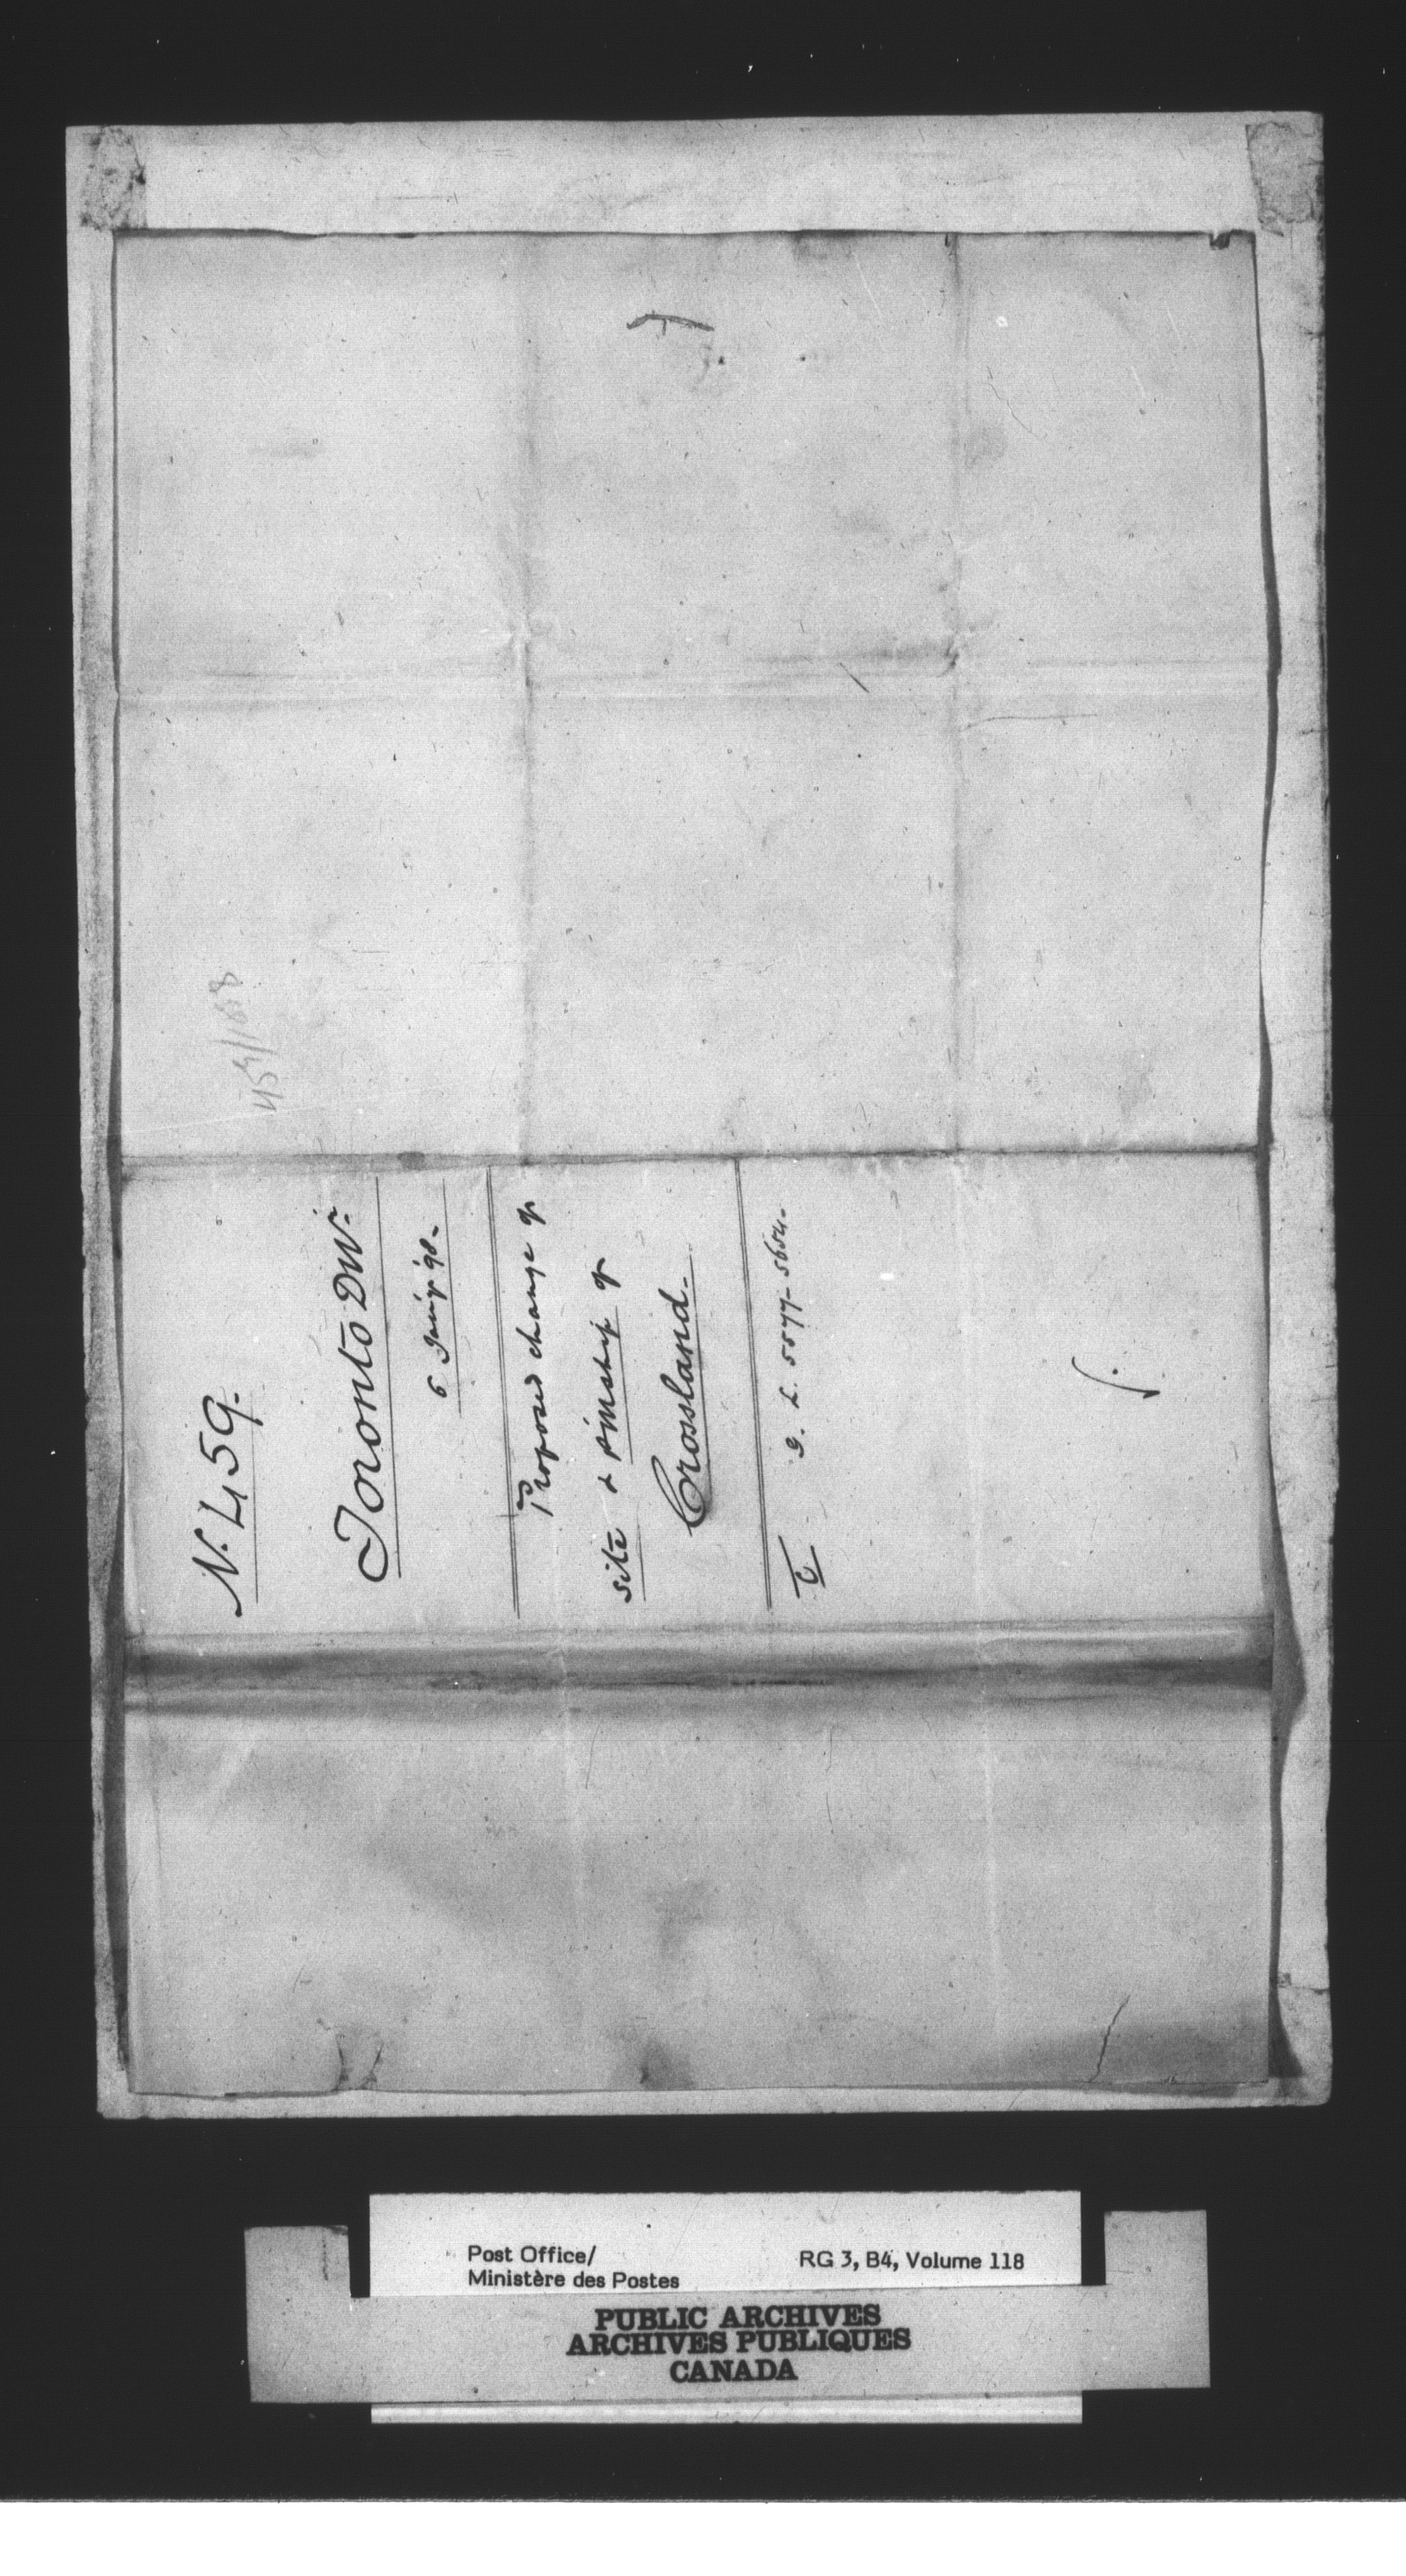 459/1898
N. 459.
Toronto DW.
5 Jany '98.
Proposed change of
site & P'M'ship of
Crossland.
C G. L. 5577-5654-
Post Office/
Ministère des Postes
RG 3, B4, Volume 118
PUBLIC ARCHIVES
ARCHIVES PUBLIQUES
CANADA